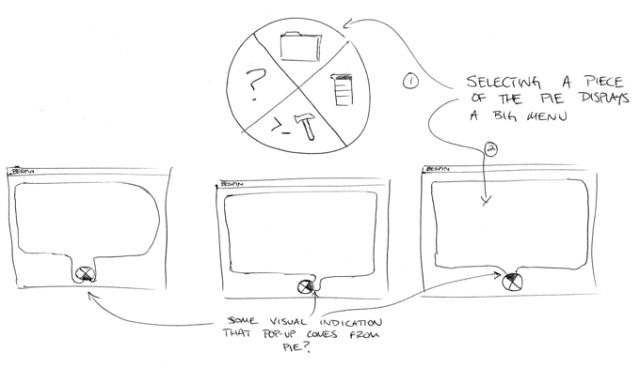 ?
>_
①
SELECTING A PIECE
OF THE PIE DISPLAYS
A BIG MENU
②
BESPIN
BESPIN
BESPIN
SOME VISUAL INDICATION
THAT POP-UP COMES FROM
PIE?